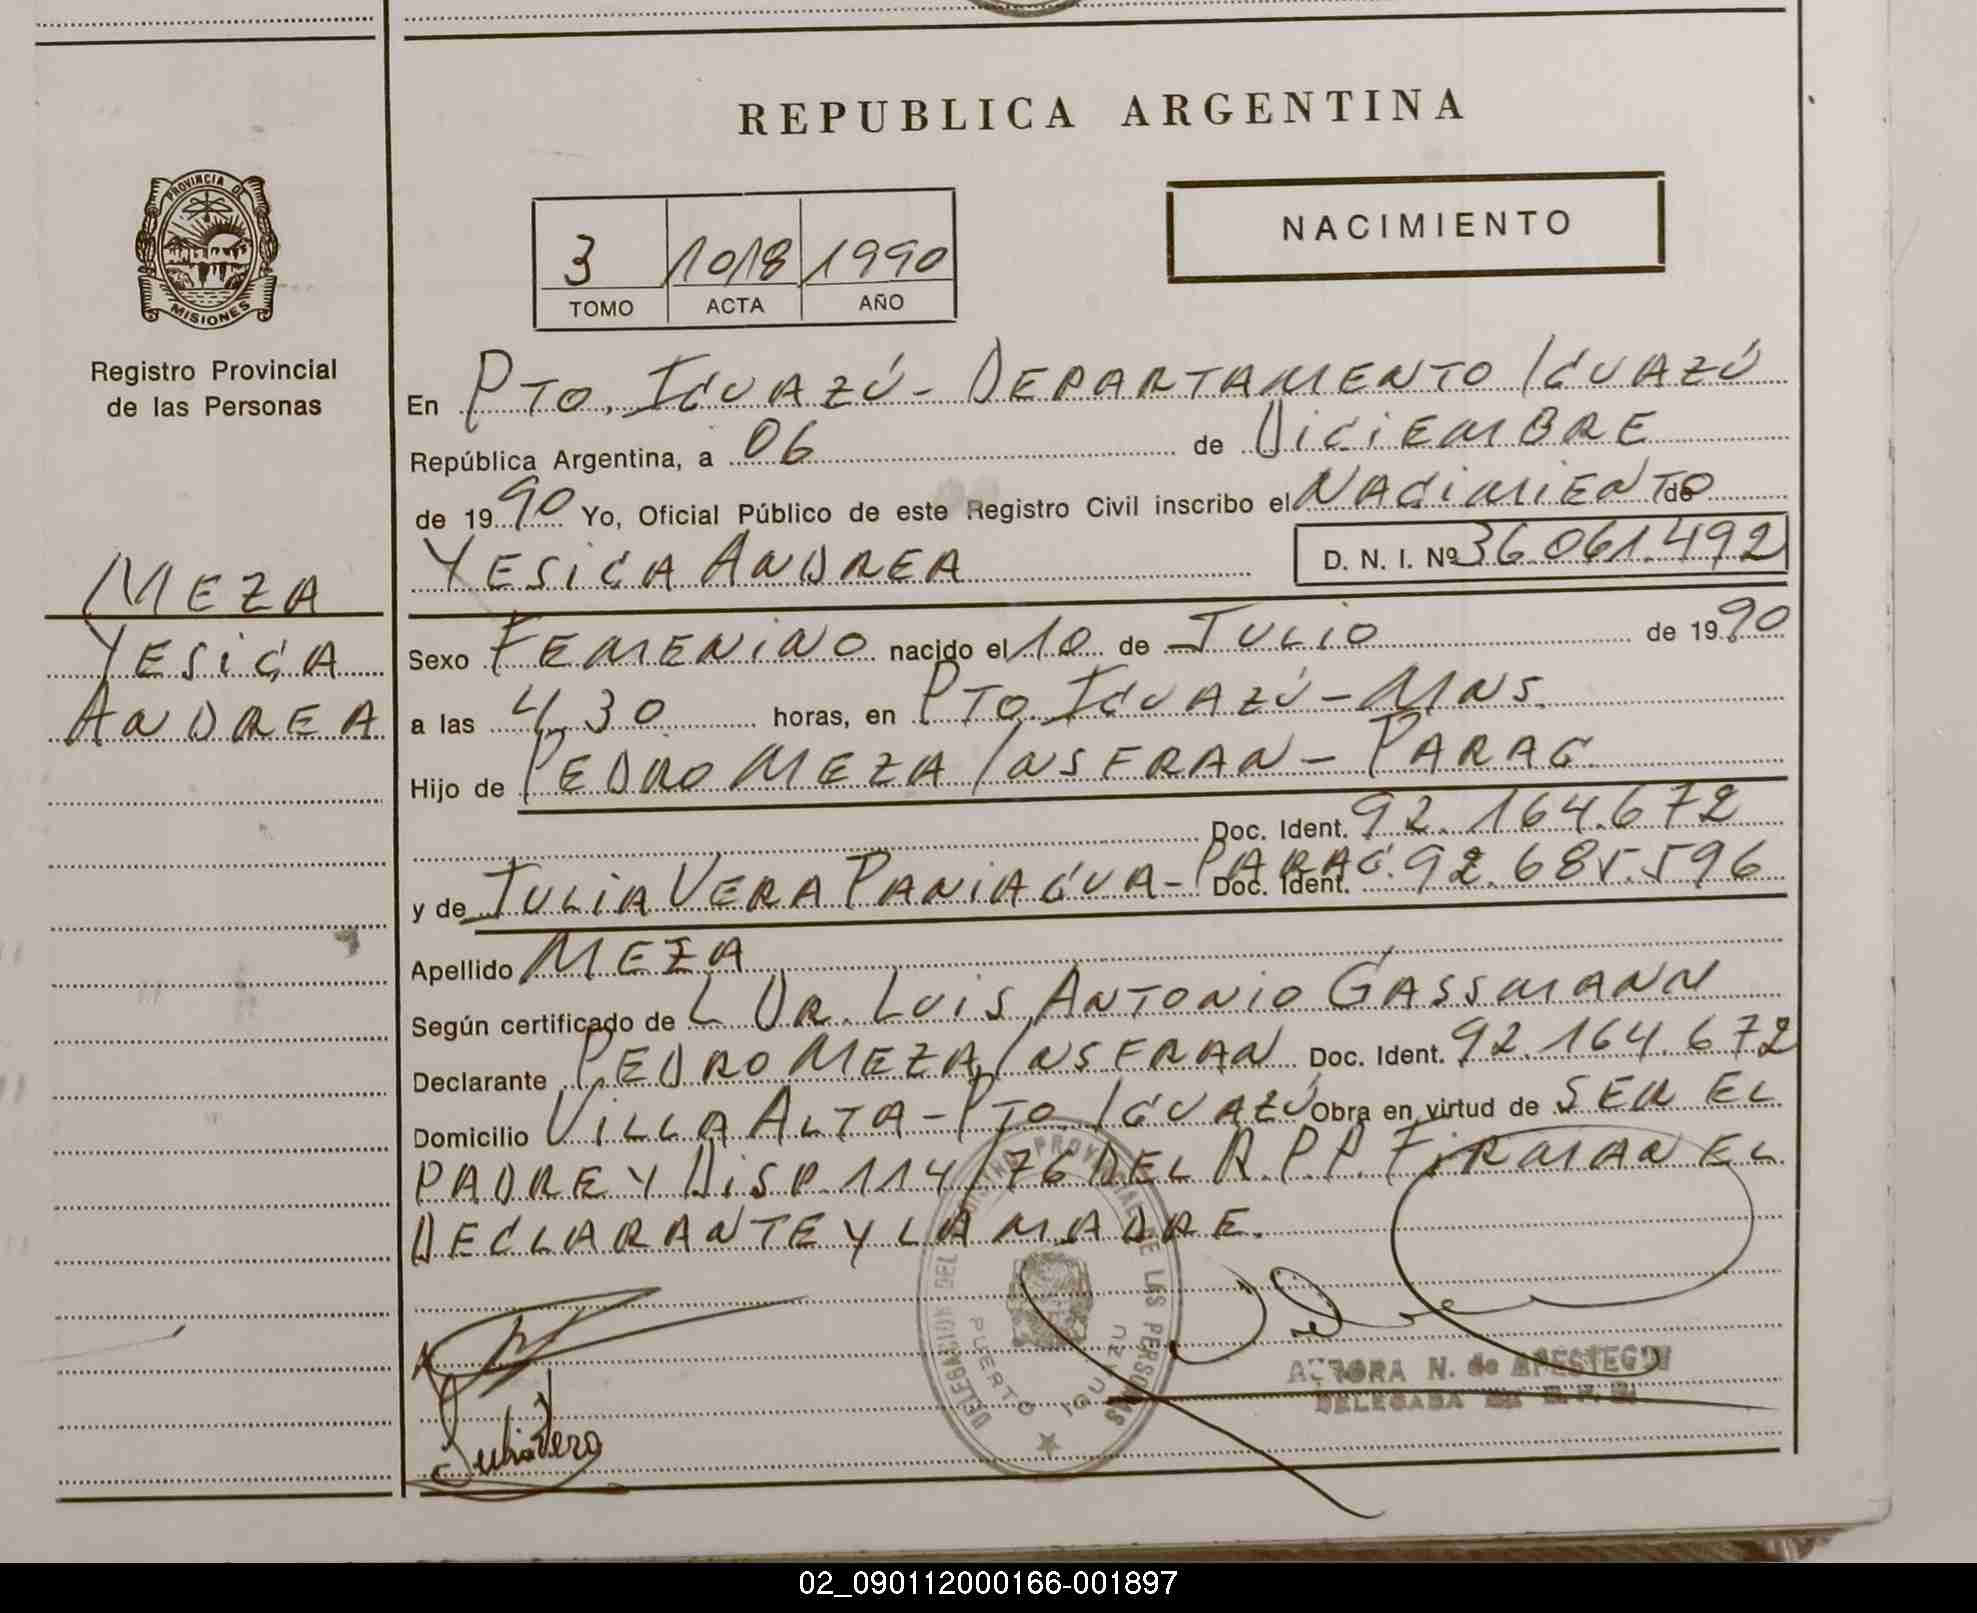 REPUBLICA ARGENTINA
PROVINCIA DE
MISIONES
Registro Provincial
de las Personas
NACIMIENTO
3 1018 1990
TOMO ACTA AÑO
En PTO. IGUAZÚ - DEPARTAMENTO IGUAZÚ
República Argentina, a 06 de DICIEMBRE
de 1990 Yo, Oficial Público de este Registro Civil inscribo el NACIMIENTO de
YESICA ANDREA D. N. I. Nº 36.061.492
MEZA
YESICA
ANDREA
Sexo FEMENINO nacido el 10 de JULIO de 1990
a las 4,30 horas, en PTO. IGUAZÚ - MNS.
Hijo de PEDRO MEZA INSFRAN - PARAG.
Doc. Ident. 92.164.672
y de JULIA VERA PANIAGUA - PARAG. Doc. Ident. 92.685.596
Apellido MEZA
Según certificado de L DR. LUIS ANTONIO GASSMANN
Declarante PEDRO MEZA INSFRAN Doc. Ident. 92.164.672
Domicilio VILLA ALTA - PTO. IGUAZÚ Obra en virtud de SER EL
PADRE Y DISP. 114/76 DEL R.P.P. FIRMAN EL
DECLARANTE Y LA MADRE.
DELEGACION DEL REGISTRO PROVINCIAL DE LAS PERSONAS
PUERTO IGUAZU
AURORA N. de APESTEGUI
DELEGADA
Julia Vera
02_090112000166-001897